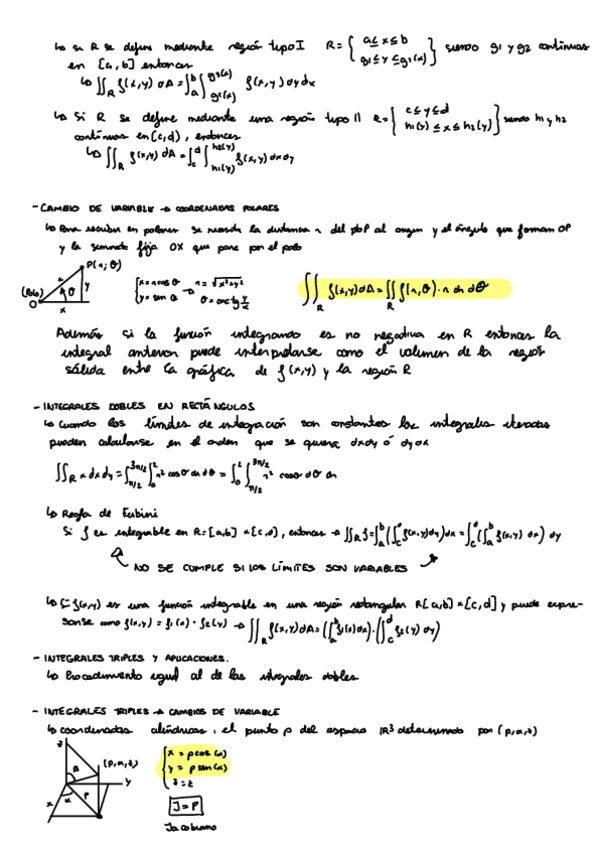 ↳ si R se define mediante región tipo I R = { a ≤ x ≤ b
g1 ≤ y ≤ g2(x) } siendo g1 y g2 continuas
en [a, b] entonces
↳ ∬_R f(x,y) dA = ∫_a^b ∫_{g1(x)}^{g2(x)} f(x,y) dy dx
↳ Si R se define mediante una región tipo II R = { c ≤ y ≤ d
h1(y) ≤ x ≤ h2(y) } siendo h1 y h2
continuas en (c, d), entonces
↳ ∬_R f(x,y) dA = ∫_c^d ∫_{h1(y)}^{h2(y)} f(x,y) dx dy
- CAMBIO DE VARIABLE → COORDENADAS POLARES
↳ Para escribir en polares se la distancia r del pto P al origen y el ángulo que forman OP
y la semirrecta fija OX que pasa por el polo
P(r; θ)
(Polo)
O
r
θ
y
x
{ x = r cos θ
y = sen θ → r = √(x² + y²)
θ = arctg y/x
∬_R f(x,y) dA = ∬_R f(r,θ) · r dr dθ
Además si la función integrando es no negativa en R entonces la
integral anterior puede interpretarse como el volumen de la región
sólida entre la gráfica de f(x,y) y la región R
- INTEGRALES DOBLES EN RECTÁNGULOS
↳ Cuando los límites de integración son constantes las integrales iteradas
pueden calcularse en el orden que se quiera, dxdy ó dydx
∬_R x dx dy = ∫_{π/2}^{3π/2} ∫_0^2 r² cos θ dr dθ = ∫_0^2 ∫_{π/2}^{3π/2} r² cos θ dθ dr
↳ Regla de Fubini
Si f es integrable en R = [a,b] × [c,d], entonces → ∬_R f = ∫_a^b (∫_c^d f(x,y) dy) dx = ∫_c^d (∫_a^b f(x,y) dx) dy
NO SE CUMPLE SI LOS LÍMITES SON VARIABLES
↳ f(x,y) es una función integrable en una región rectangular R [a,b] × [c,d] y puede expre-
sarse como f(x,y) = f1(x) · f2(y) → ∬_R f(x,y) dA = (∫_a^b f1(x) dx) · (∫_c^d f2(y) dy)
- INTEGRALES TRIPLES Y APLICACIONES.
↳ Procedimiento igual al de las integrales dobles
- INTEGRALES TRIPLES → CAMBIOS DE VARIABLE
↳ coordenadas cilíndricas: el punto p del espacio ℝ³ determinado por (ρ, α, z)
z
(ρ, α, z)
y
x
α
ρ
{ x = ρ cos (α)
y = ρ sen (α)
z = z
J = ρ
Jacobiano